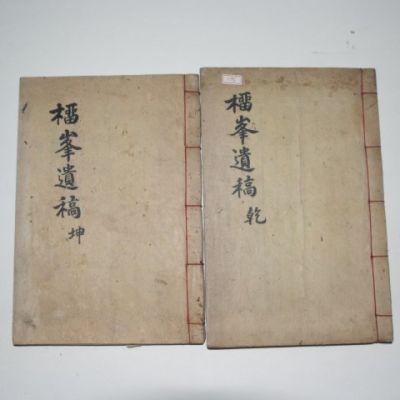 橊峯遺稿 乾
橊峯遺稿 坤